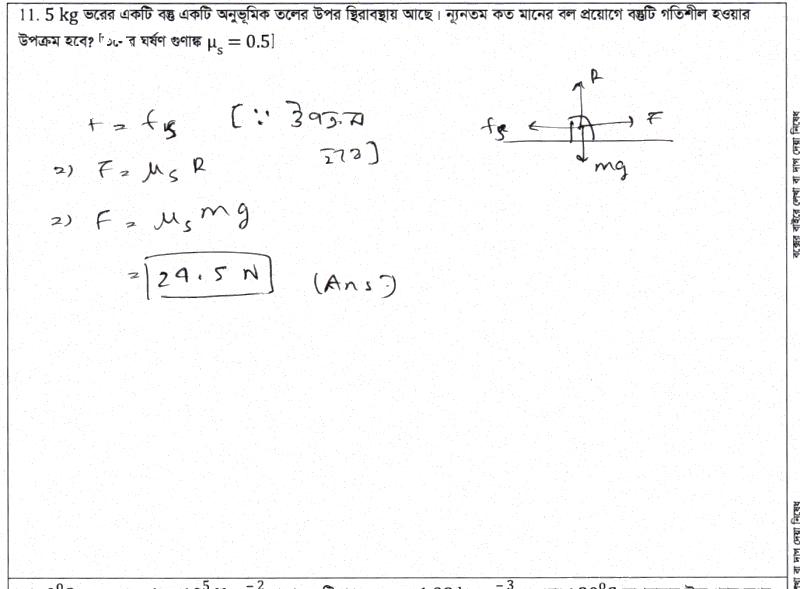 11. 5 kg ভরের একটি বস্তু একটি অনুভূমিক তলের উপর স্থিরাবস্থায় আছে। ন্যূনতম কত মানের বল প্রয়োগে বস্তুটি গতিশীল হওয়ার
উপক্রম হবে? র ঘর্ষণ গুণাঙ্ক μₛ = 0.5]
R
F = fₛ [∵ উপক্রম
হয়]
fₛ F
mg
⇒) F = μₛ R
⇒) F = μₛ mg
= 24.5 N (Ans:)
বক্সের বাইরে লেখা বা দাগ দেয়া নিষেধ
খা বা দাগ দেয়া নিষেধ